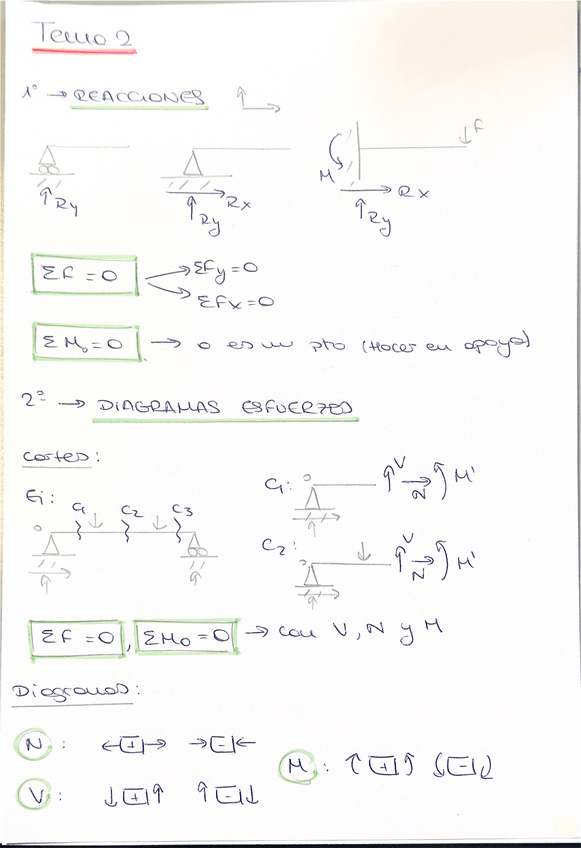 Tema 2
1º → REACCIONES
F
M
Ry
Ry Rx
Rx
Ry
ΣF = 0
ΣFy = 0
ΣFx = 0
ΣMo = 0 → o es un pto (Hacer en apoyo)
2º → DIAGRAMAS ESFUERZOS
Cortes:
Ej:
o C1 C2 C3
C1: o V N M'
C2: o V N M'
ΣF = 0, ΣMo = 0 → con V, N y M
Diagramas:
N: ←[+]→ →[-]←
M: ↑[+]↑ ↓[-]↓
V: ↓[+]↑ ↑[-]↓